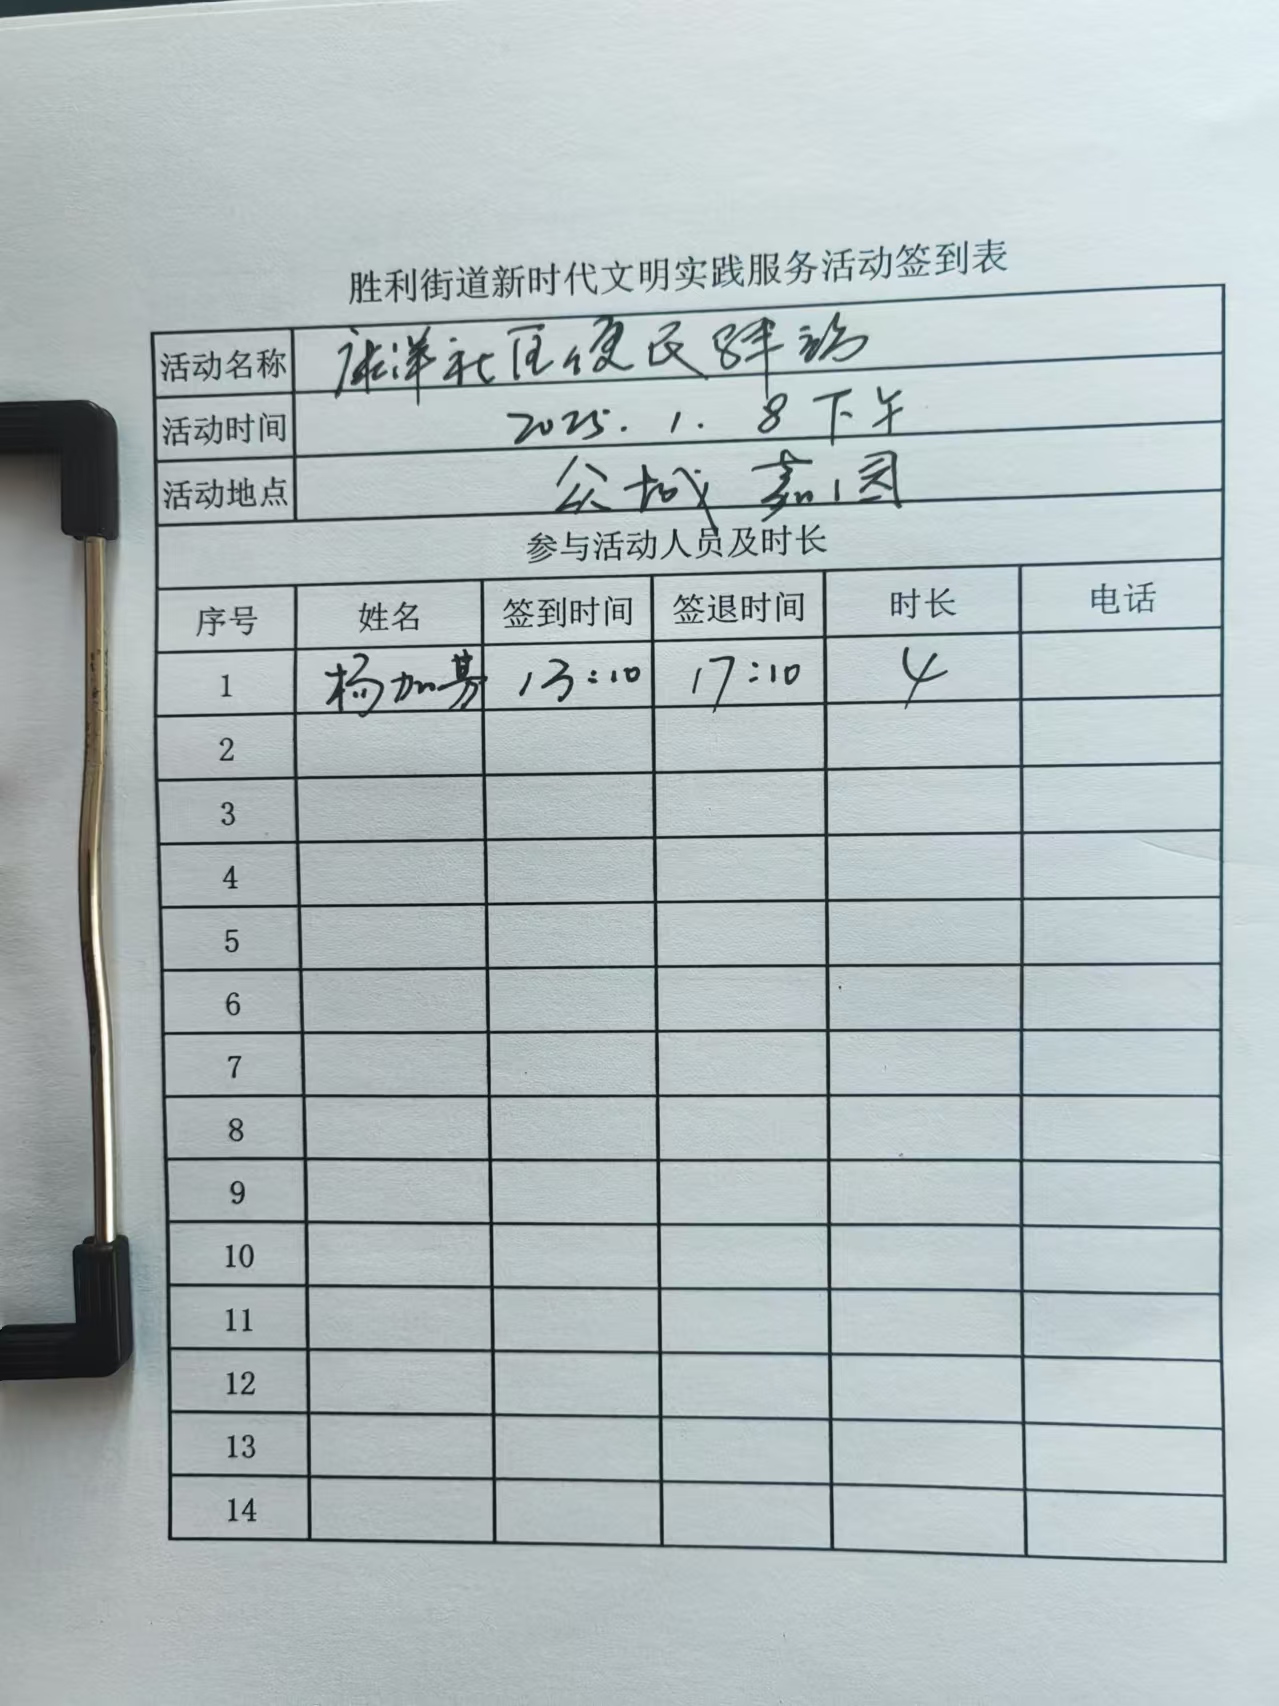 胜利街道新时代文明实践服务活动签到表
活动名称 洋社区便民驿站
活动时间 2025.1.8下午
活动地点 公城嘉园
参与活动人员及时长
序号 姓名 签到时间 签退时间 时长 电话
1 杨加 13:10 17:10 4
2
3
4
5
6
7
8
9
10
11
12
13
14